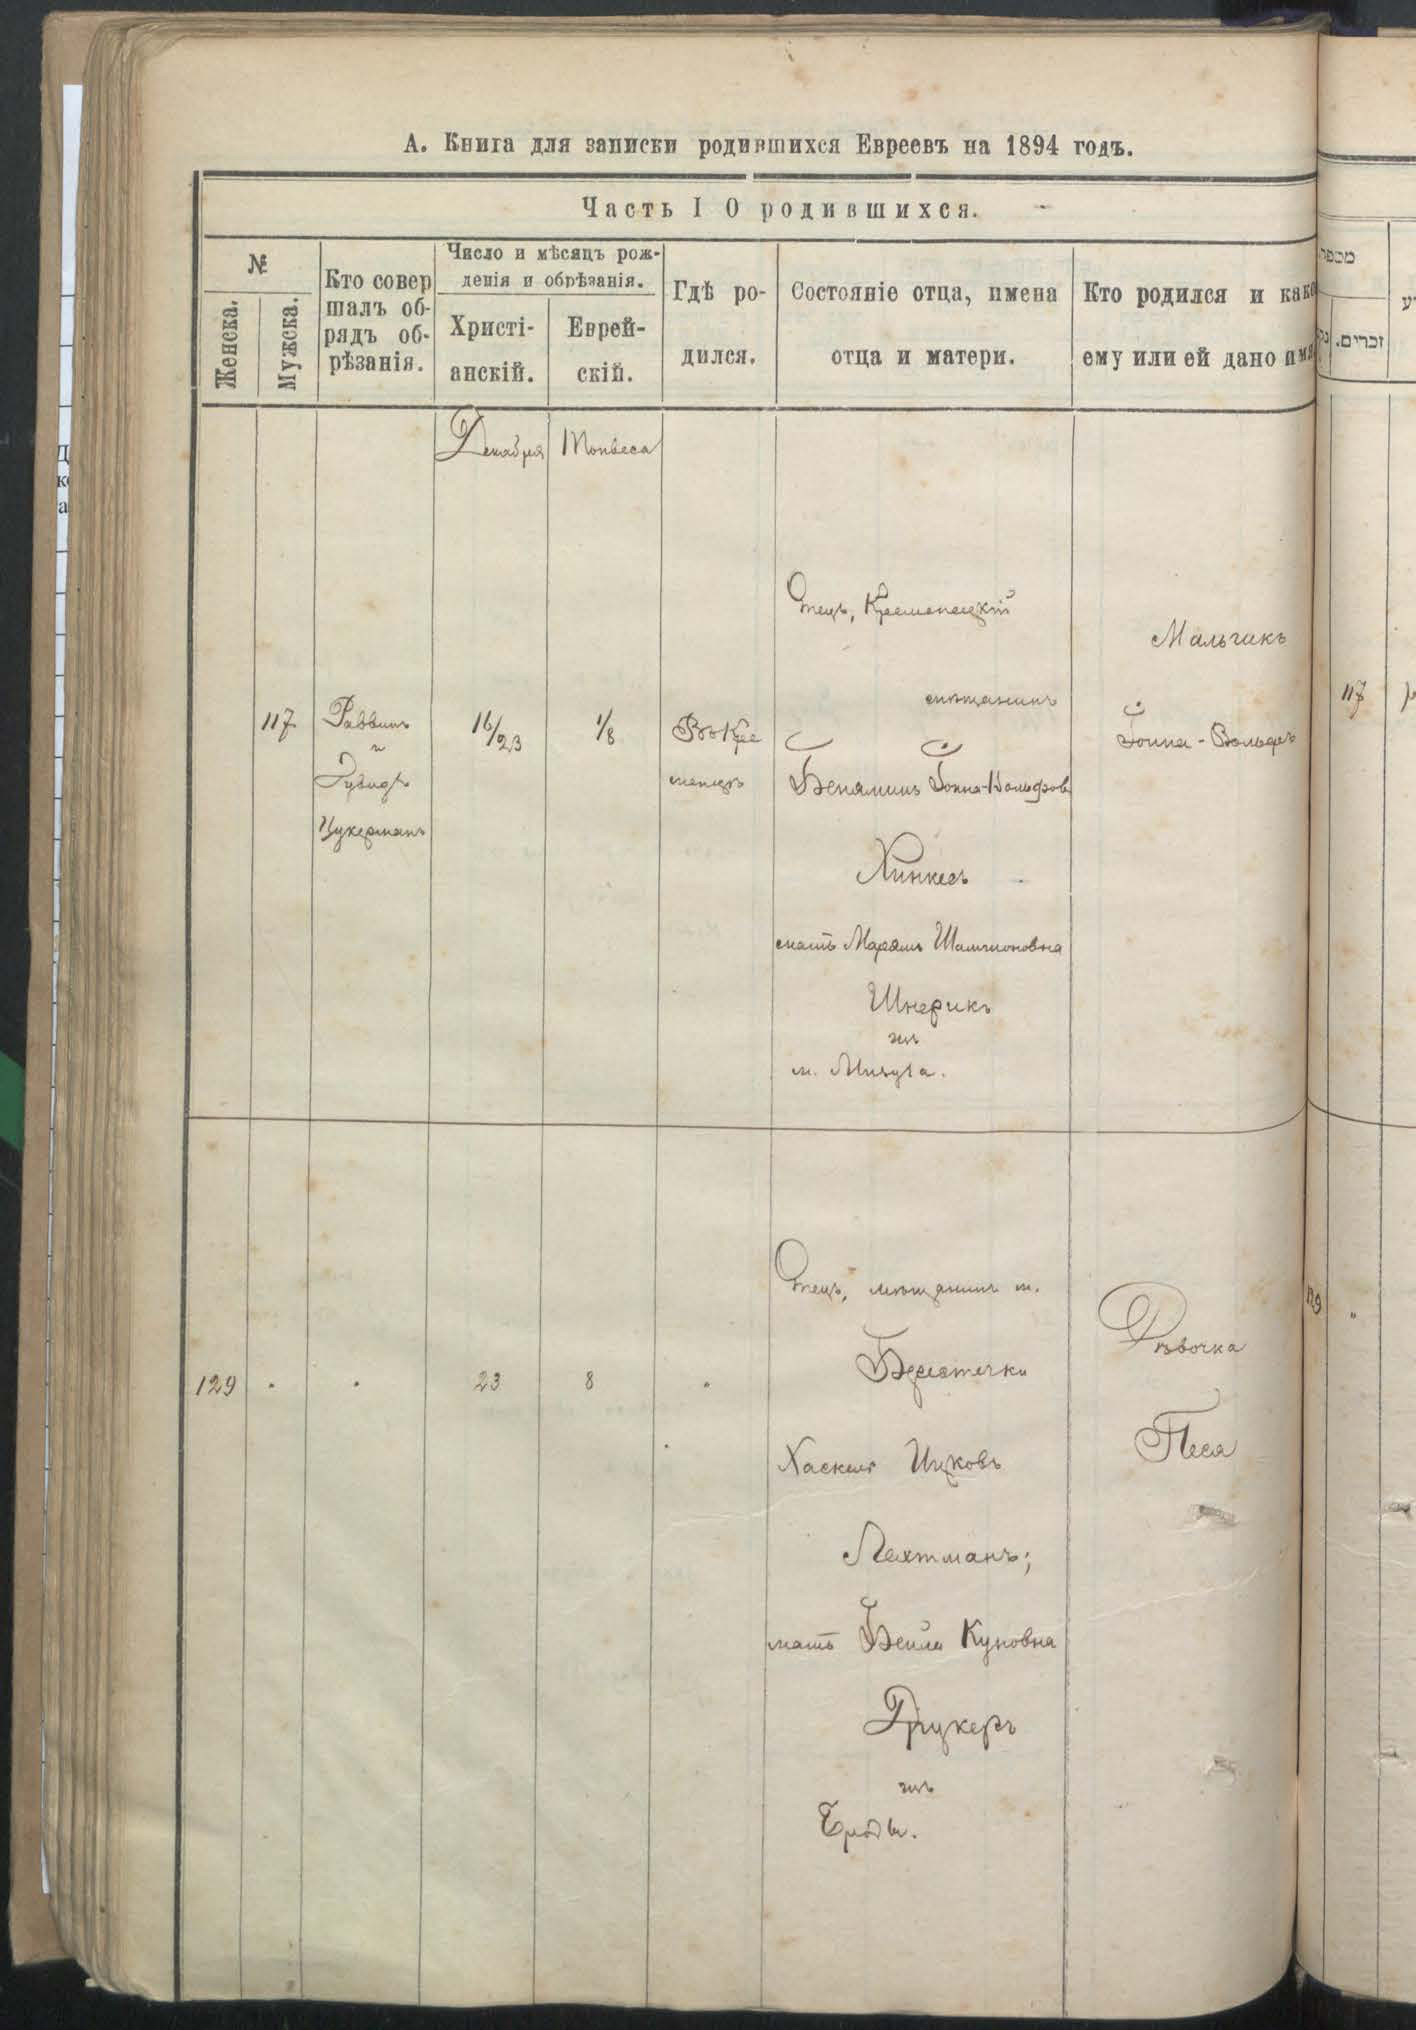 А. Книга для записки родившихся Евреевъ на 1894 годъ.
Часть I О родившихся.
№
Женска.
Мужска.
Кто совер
шалъ об-
рядъ об-
рѣзанія.
Число и мѣсяцъ рож-
денія и обрѣзанія.
Христі-
анскій.
Еврей-
скій.
Гдѣ ро-
дился.
Состояніе отца, имена
отца и матери.
Кто родился и како
ему или ей дано имя
מספר
זכרים.
Декабря
Топвеса
117
Раввинъ
и
Цукерманъ
16/23
1/8
Въ Кре
менцѣ
Отецъ, Кременецкій
мѣщанинъ
Бенямин Іонна-Вольфов
Хинкесъ
мать Марьямъ Шамшоновна
Шнерикъ
изъ
м. Мизуча.
Мальчикъ
Іонна-Вольфъ
117
129
23
8
Отецъ, мѣщанинъ м.
Берестечки
Хаскель Ицковъ
Лехтманъ;
мать Бейла Куновна
Друкеръ
изъ
Броды.
Дѣвочка
Песя
129